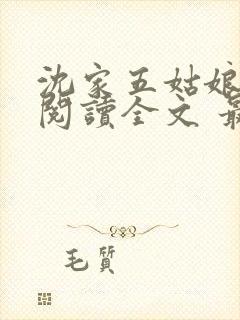 沈家五姑娘
閱讀全文 最
毛質